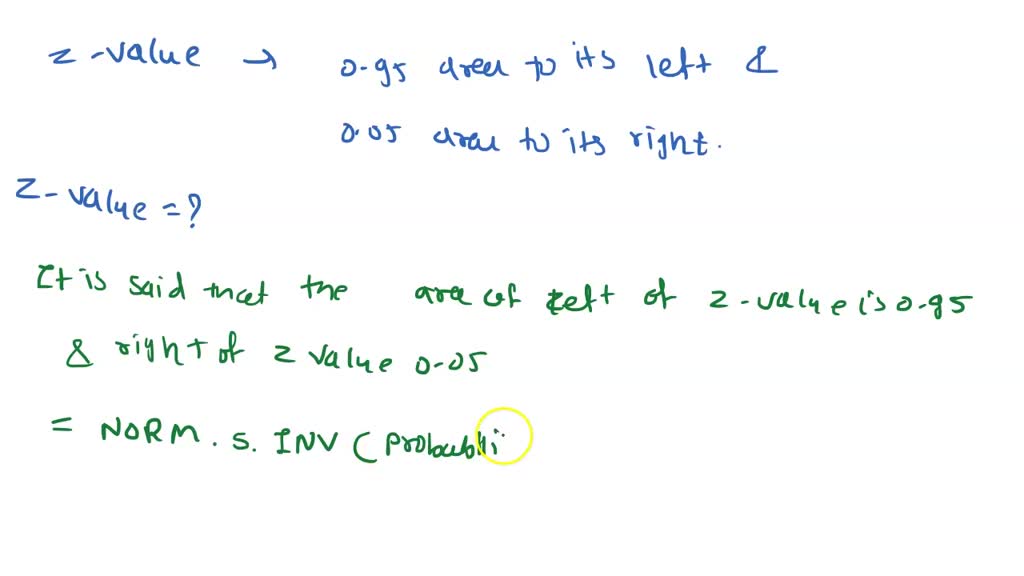 z-value → 0.95 area to its left &
0.05 area to its right.
Z-value = ?
It is said that the area of left of z-value is 0.95
& right of z value 0.05
= NORM.S.INV (Probabli